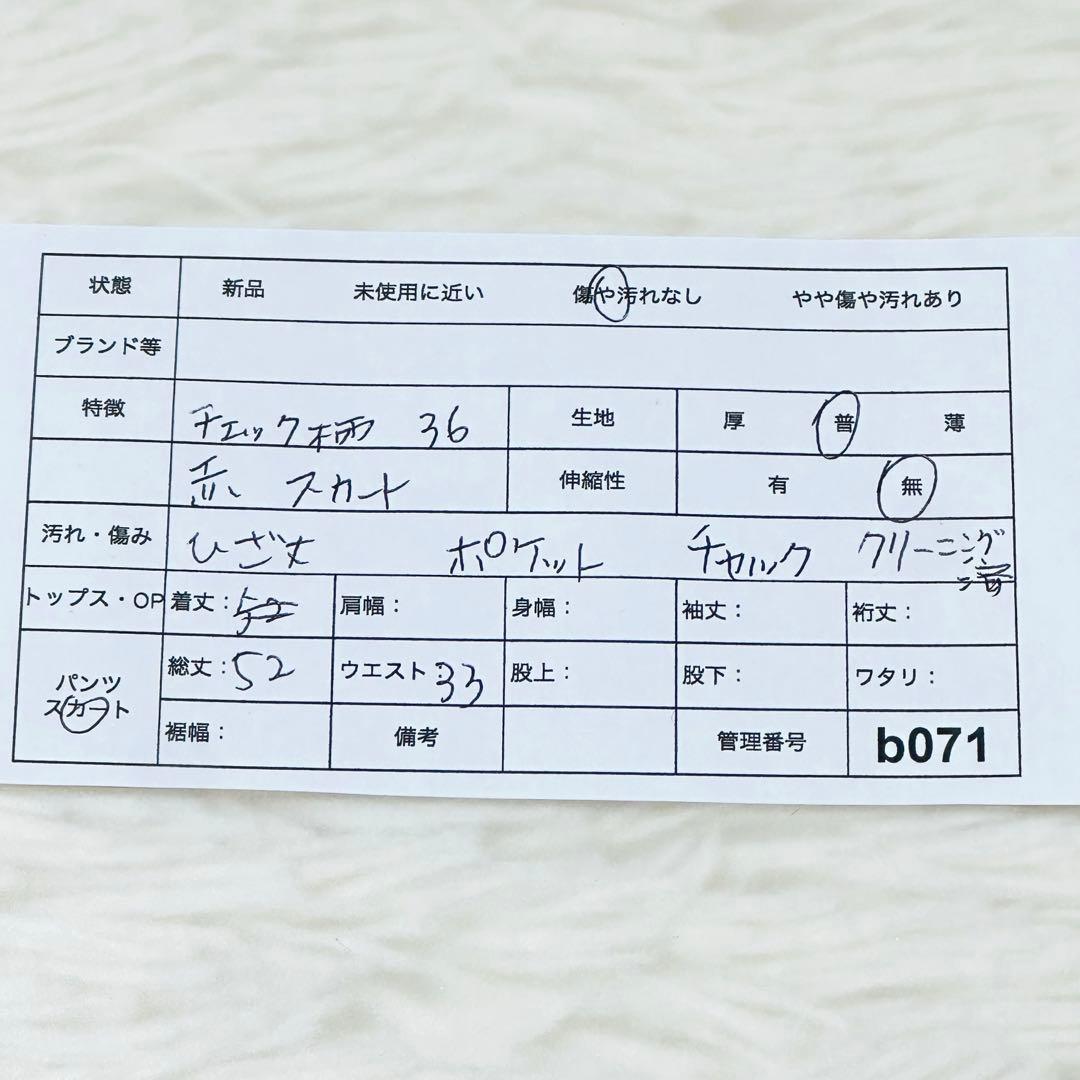 状態 新品 未使用に近い 傷や汚れなし やや傷や汚れあり
ブランド等
特徴 チェック柄 36 生地 厚 普 薄
赤 スカート 伸縮性 有 無
汚れ・傷み ひざ丈 ポケット チャック クリーニング済
トップス・OP 着丈: 52 肩幅: 身幅: 袖丈: 裄丈:
パンツ スカート 総丈:52 ウエスト:33 股上: 股下: ワタリ:
裾幅: 備考 管理番号 b071